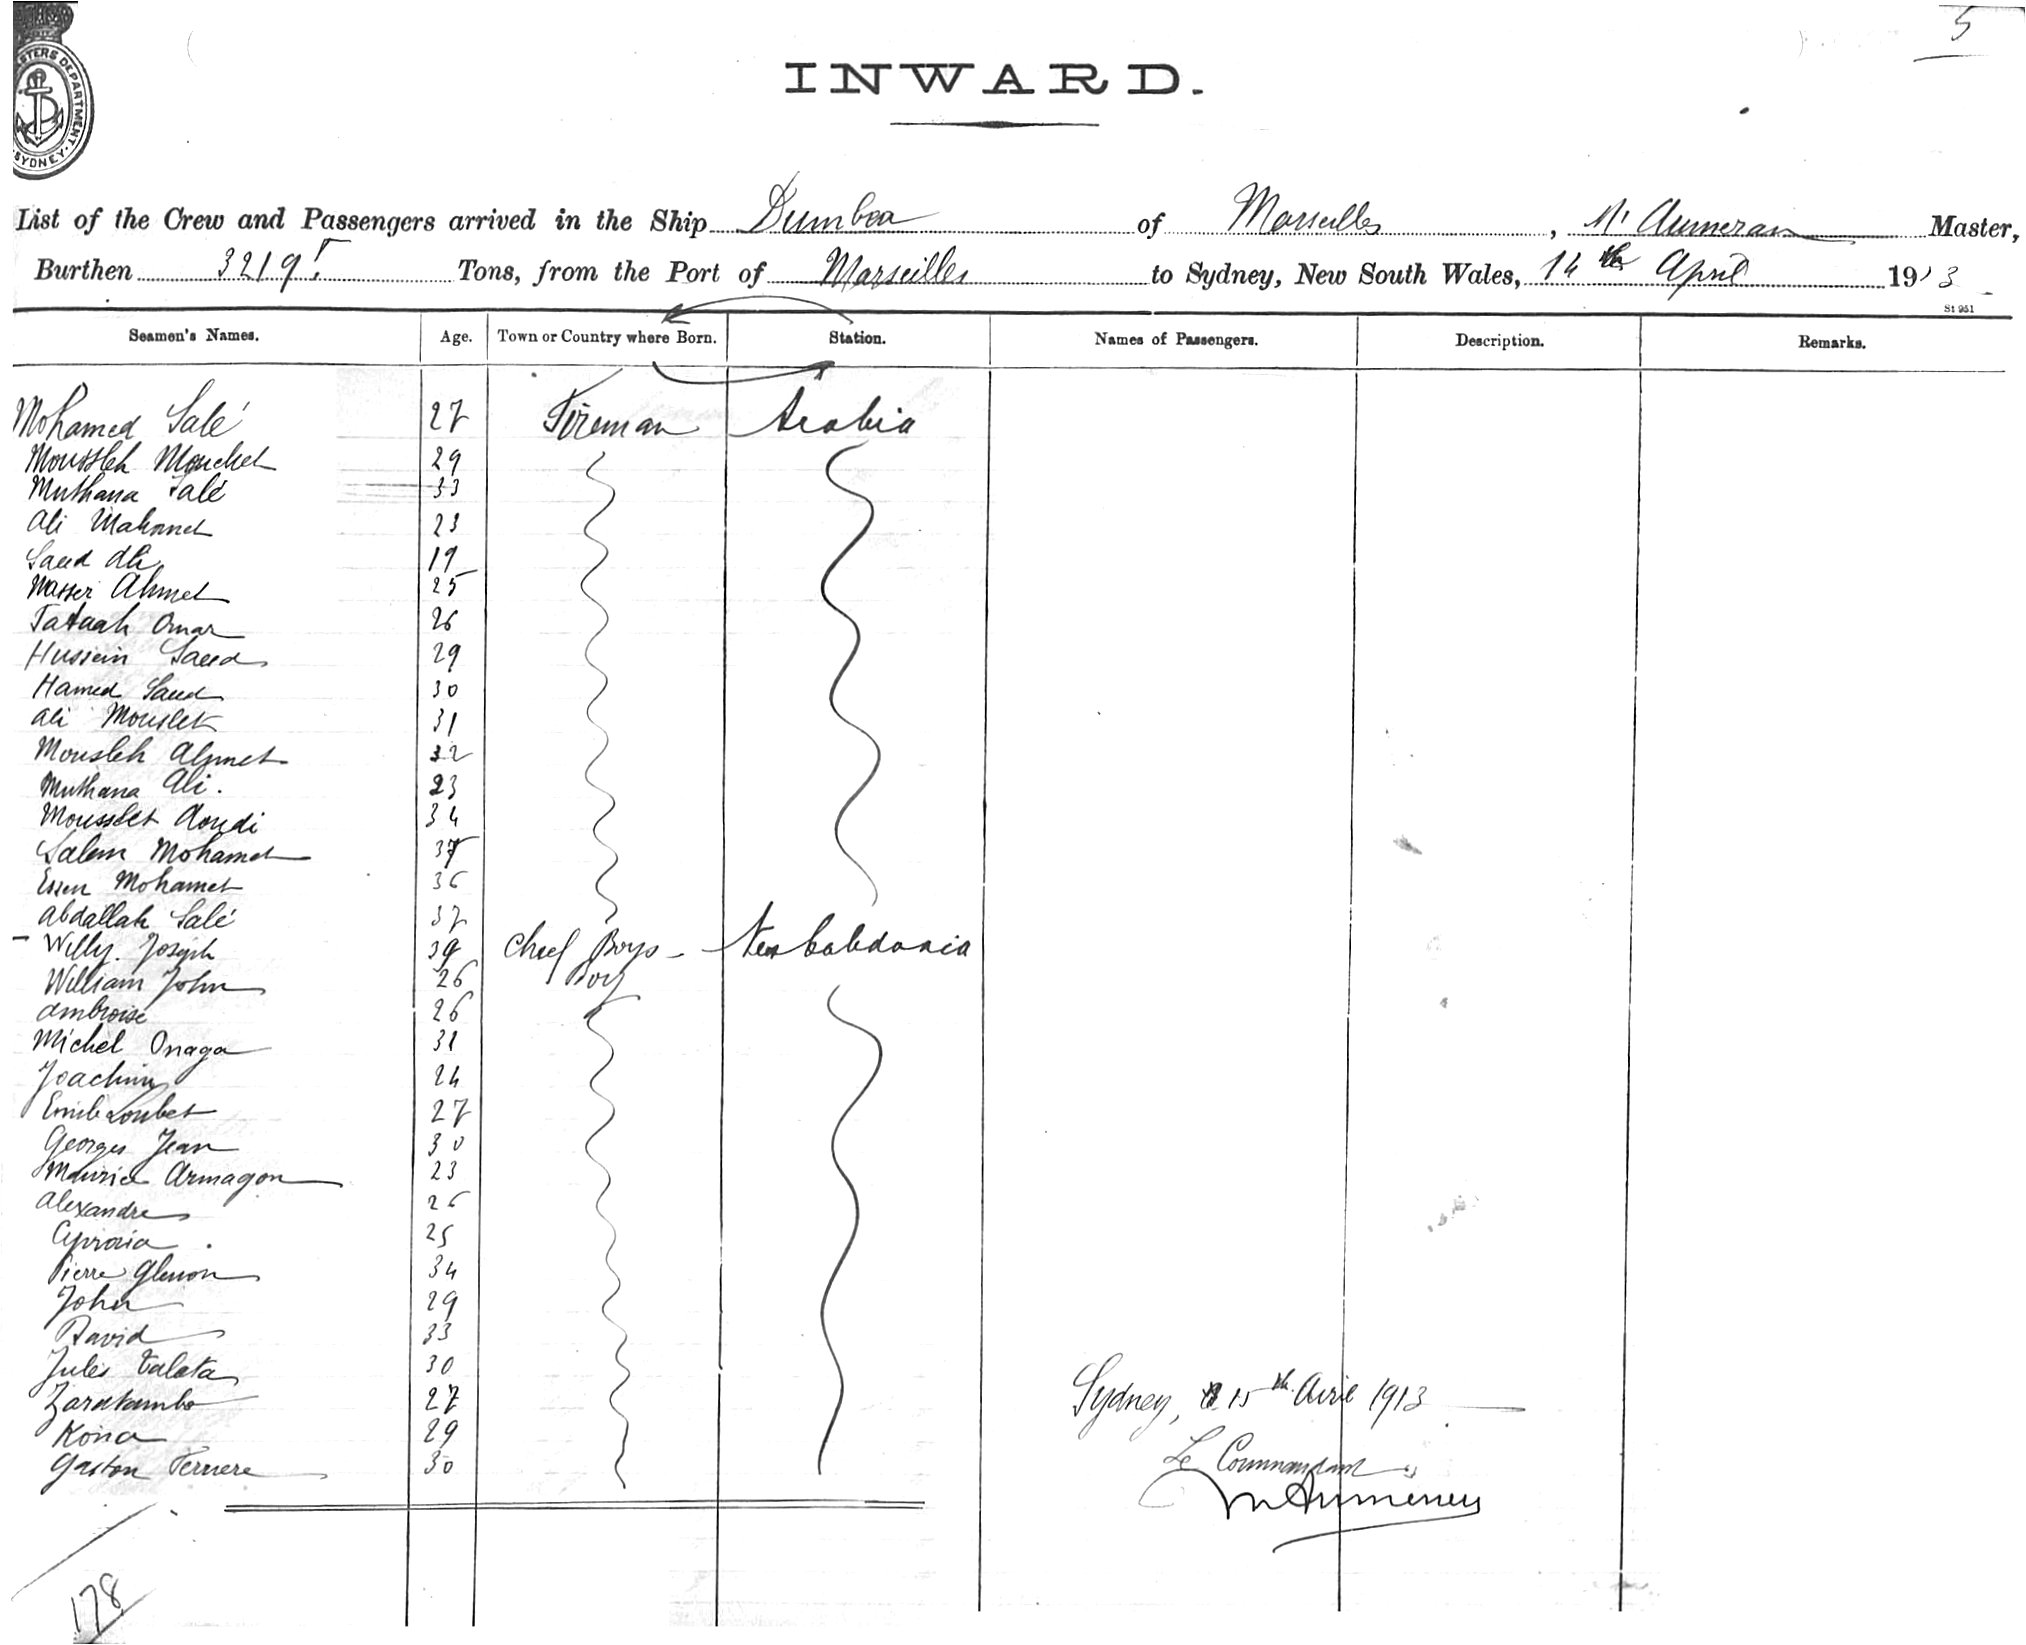 5
INWARD.
MASTERS DEPARTMENT. SYDNEY.
List of the Crew and Passengers arrived in the Ship Dumbea of Marseilles, M. Aumeran Master,
Burthen 3219 T. Tons, from the Port of Marseilles to Sydney, New South Wales, 14th April 1913
St 951
Seamen's Names. Age. Town or Country where Born. Station. Names of Passengers. Description. Remarks.
Mohamed Salé 27 Fireman Arabia
Moussleh Mouchet 29
Muthana Salé 33
Ali Mahomet 23
Saed Ali 19
Nasser Ahmet 25
Tataah Omar 26
Hussein Saed 29
Hamed Saed 30
Ali Mouslek 31
Mousleh Ahmet 32
Muthana Ali. 23
Mousslet Aoudi 34
Salem Mohamet 37
Essen Mohamet 36
Abdallah Salé 37
Willy. Joseph 39 Chief Boys - New Caledonia
William John 26 Boy
Ambroise 26
Michel Onaga 31
Joachim 24
Emile Loubet 27
Georges Jean 30
Maurice Armagon 23
Alexandre 26
25
Pierre Glenon 34
John 29
David 33
Jules Talata 30
Zaratambo 27
Kona 29
Gaston Ferriere 30
Sydney, 15th Avril 1913
Le Commandant
M Aumeran
178